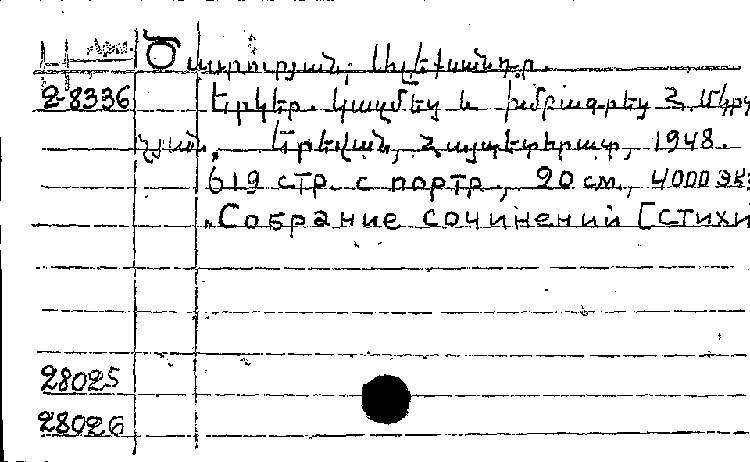 Ծատուրյան, Ալեքսանդր.
2-8336 Երկեր. Կազմեց և խմբագրեց Հ. Մկրտ
չյան. Երևան, Հայպետհրատ, 1948.
619 стр. с портр., 20 см., 4000 экз
„Собрание сочинений [стихи
28025
28026